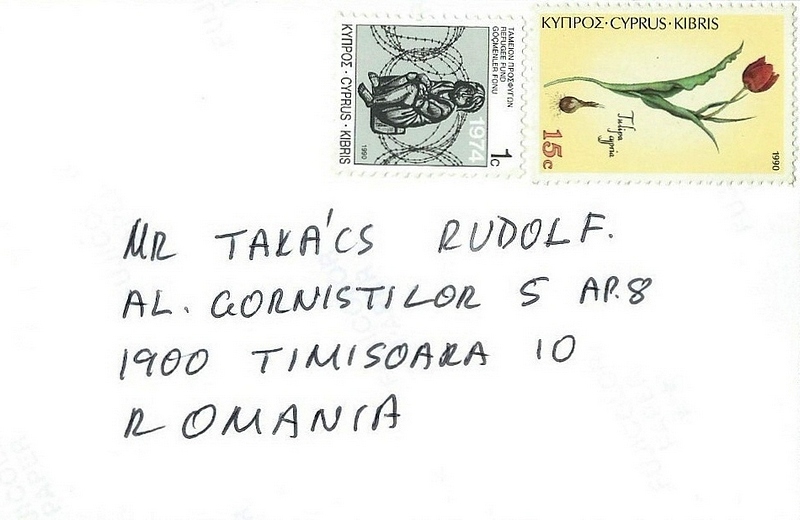 ΚΥΠΡΟΣ · CYPRUS · KIBRIS
ΤΑΜΕΙΟΝ ΠΡΟΣΦΥΓΩΝ
REFUGEE FUND
GÖÇMENLER FONU
1974
1c
1990
ΚΥΠΡΟΣ·CYPRUS·KIBRIS
Tulipa cypria
15c
1990
MR TAKA'CS RUDOLF.
AL. GORNISTILOR 5 AP.8
1900 TIMISOARA 10
ROMANIA